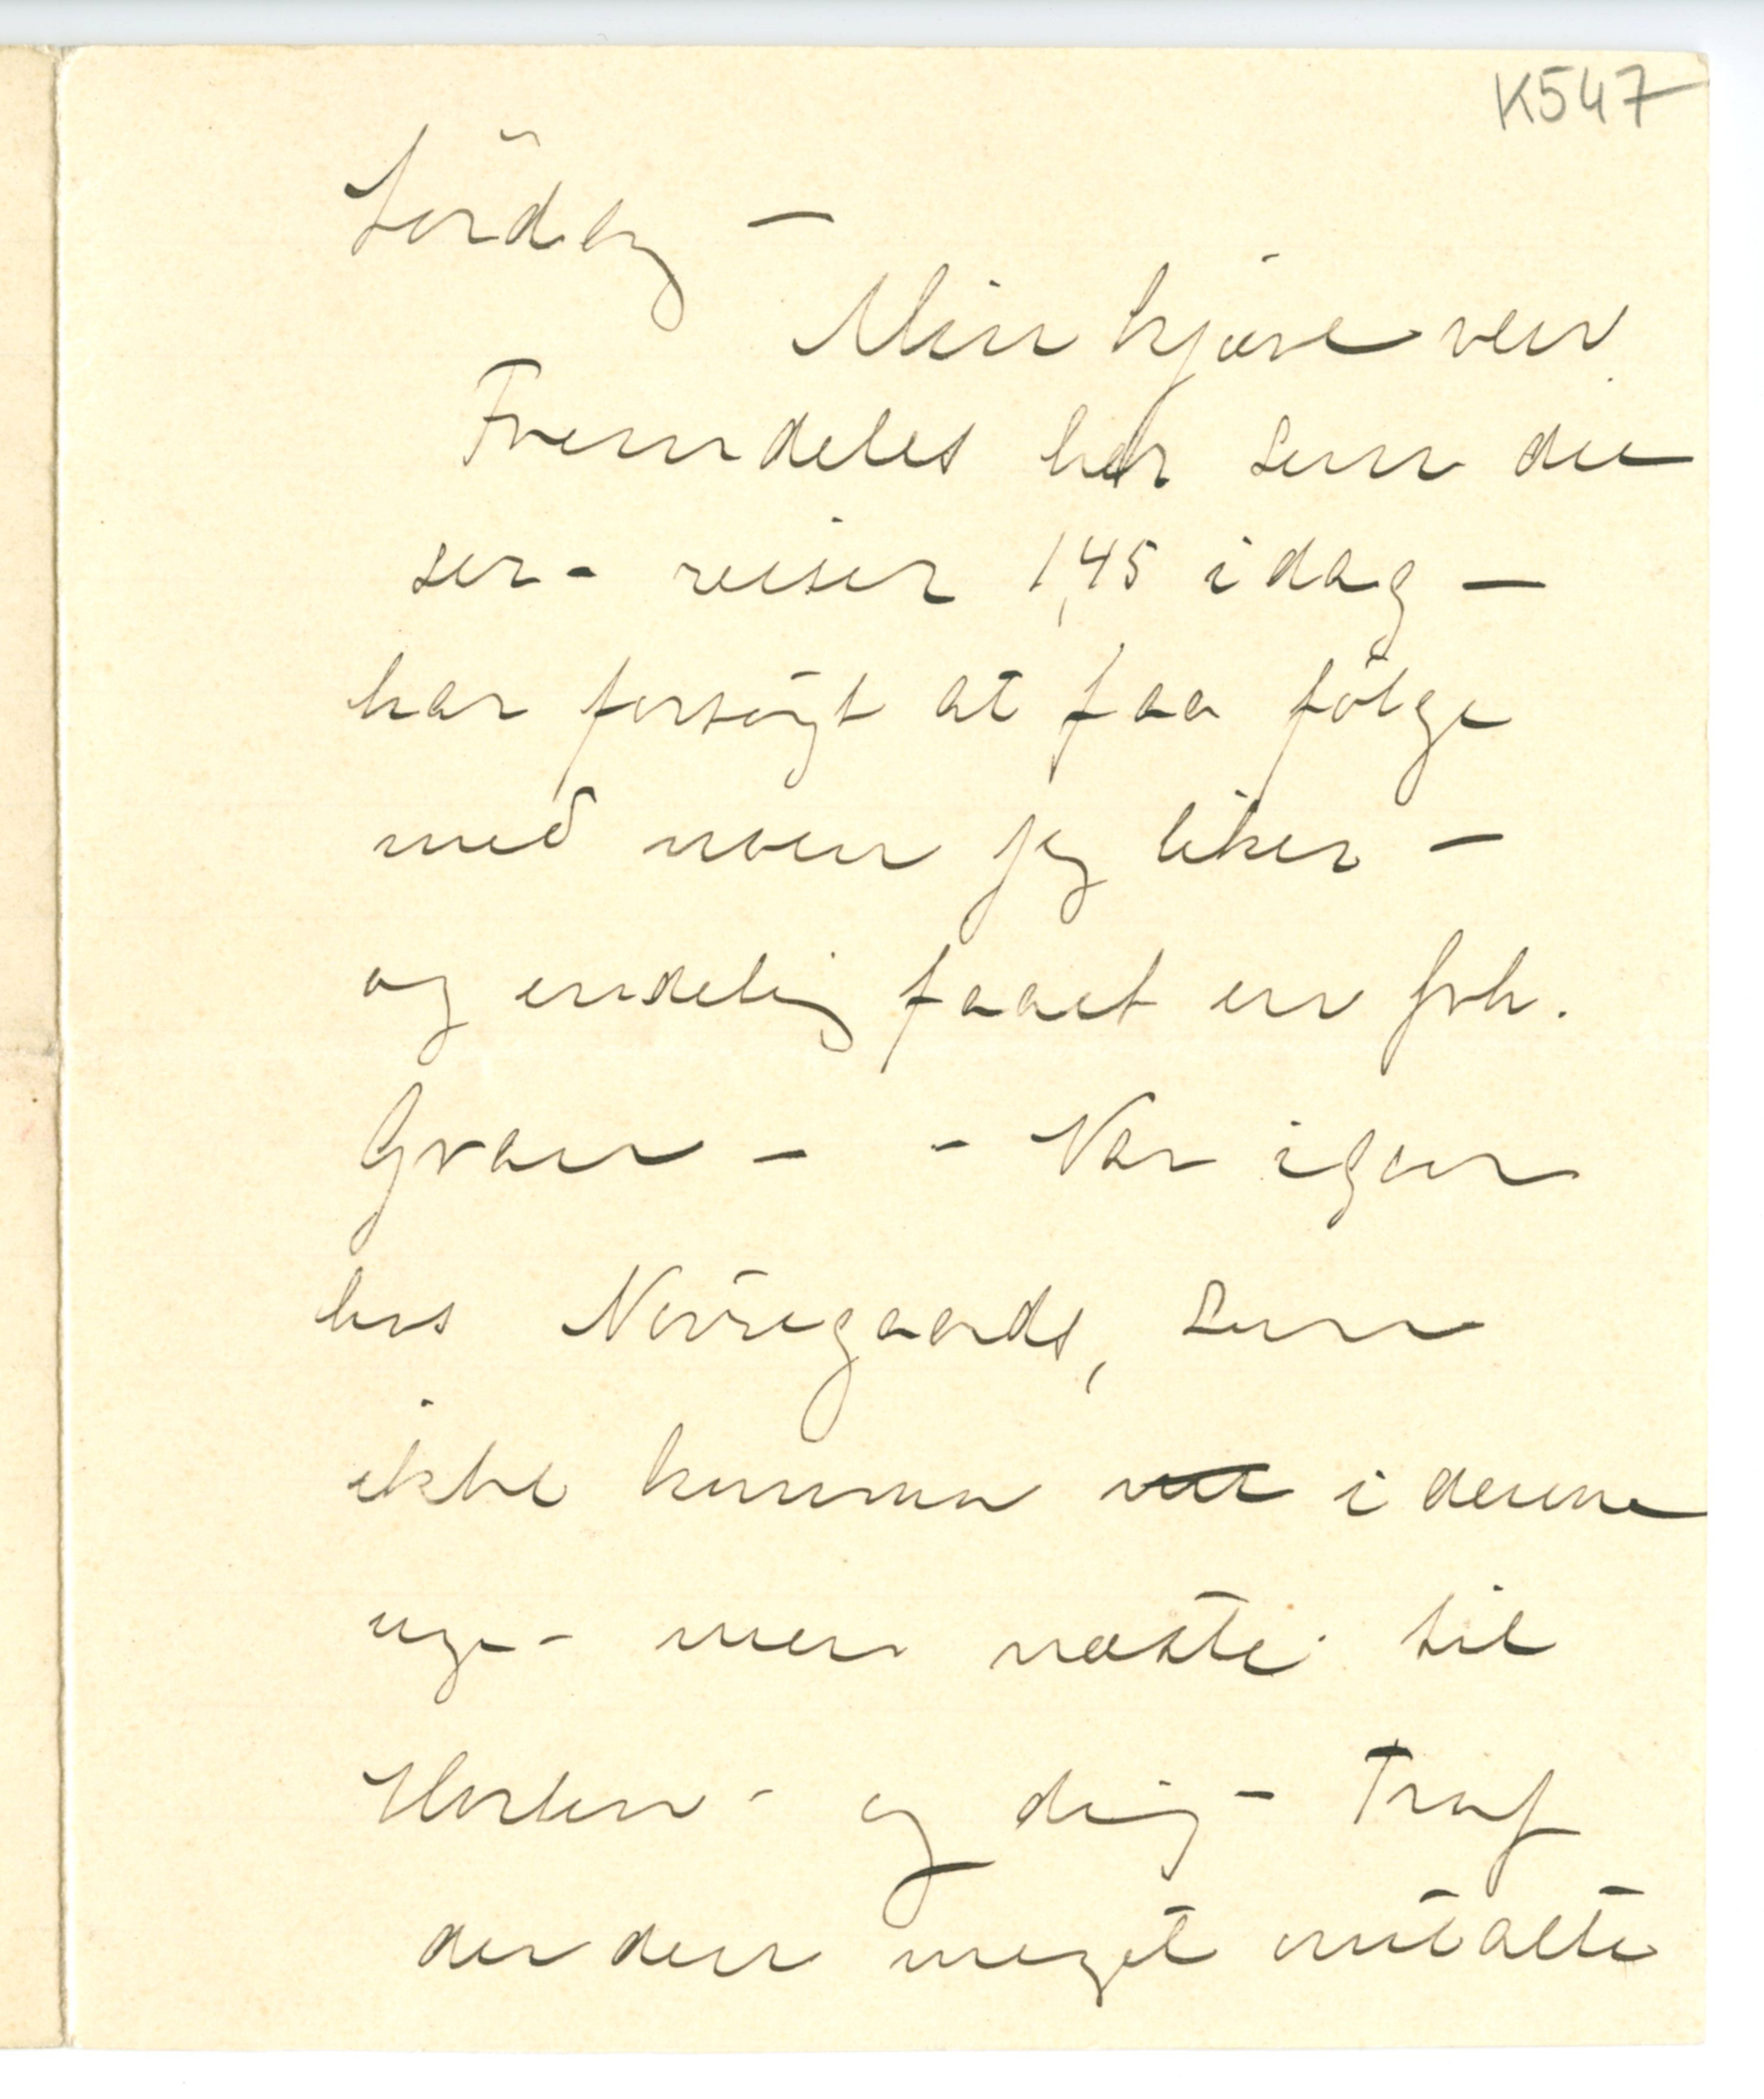 K547
Lördag —
Min kjære ven
Fremdeles her som du
ser - reiser 1,45 idag —
har forsögt at faa fölge
med noen jeg liker —
og endelig faaet en frk.
Gran - - Var igaar
hos Nörregaards, som
ikke kommer i denne
uge - men næste til
Horten - og dig - Traf
der den meget omtalte